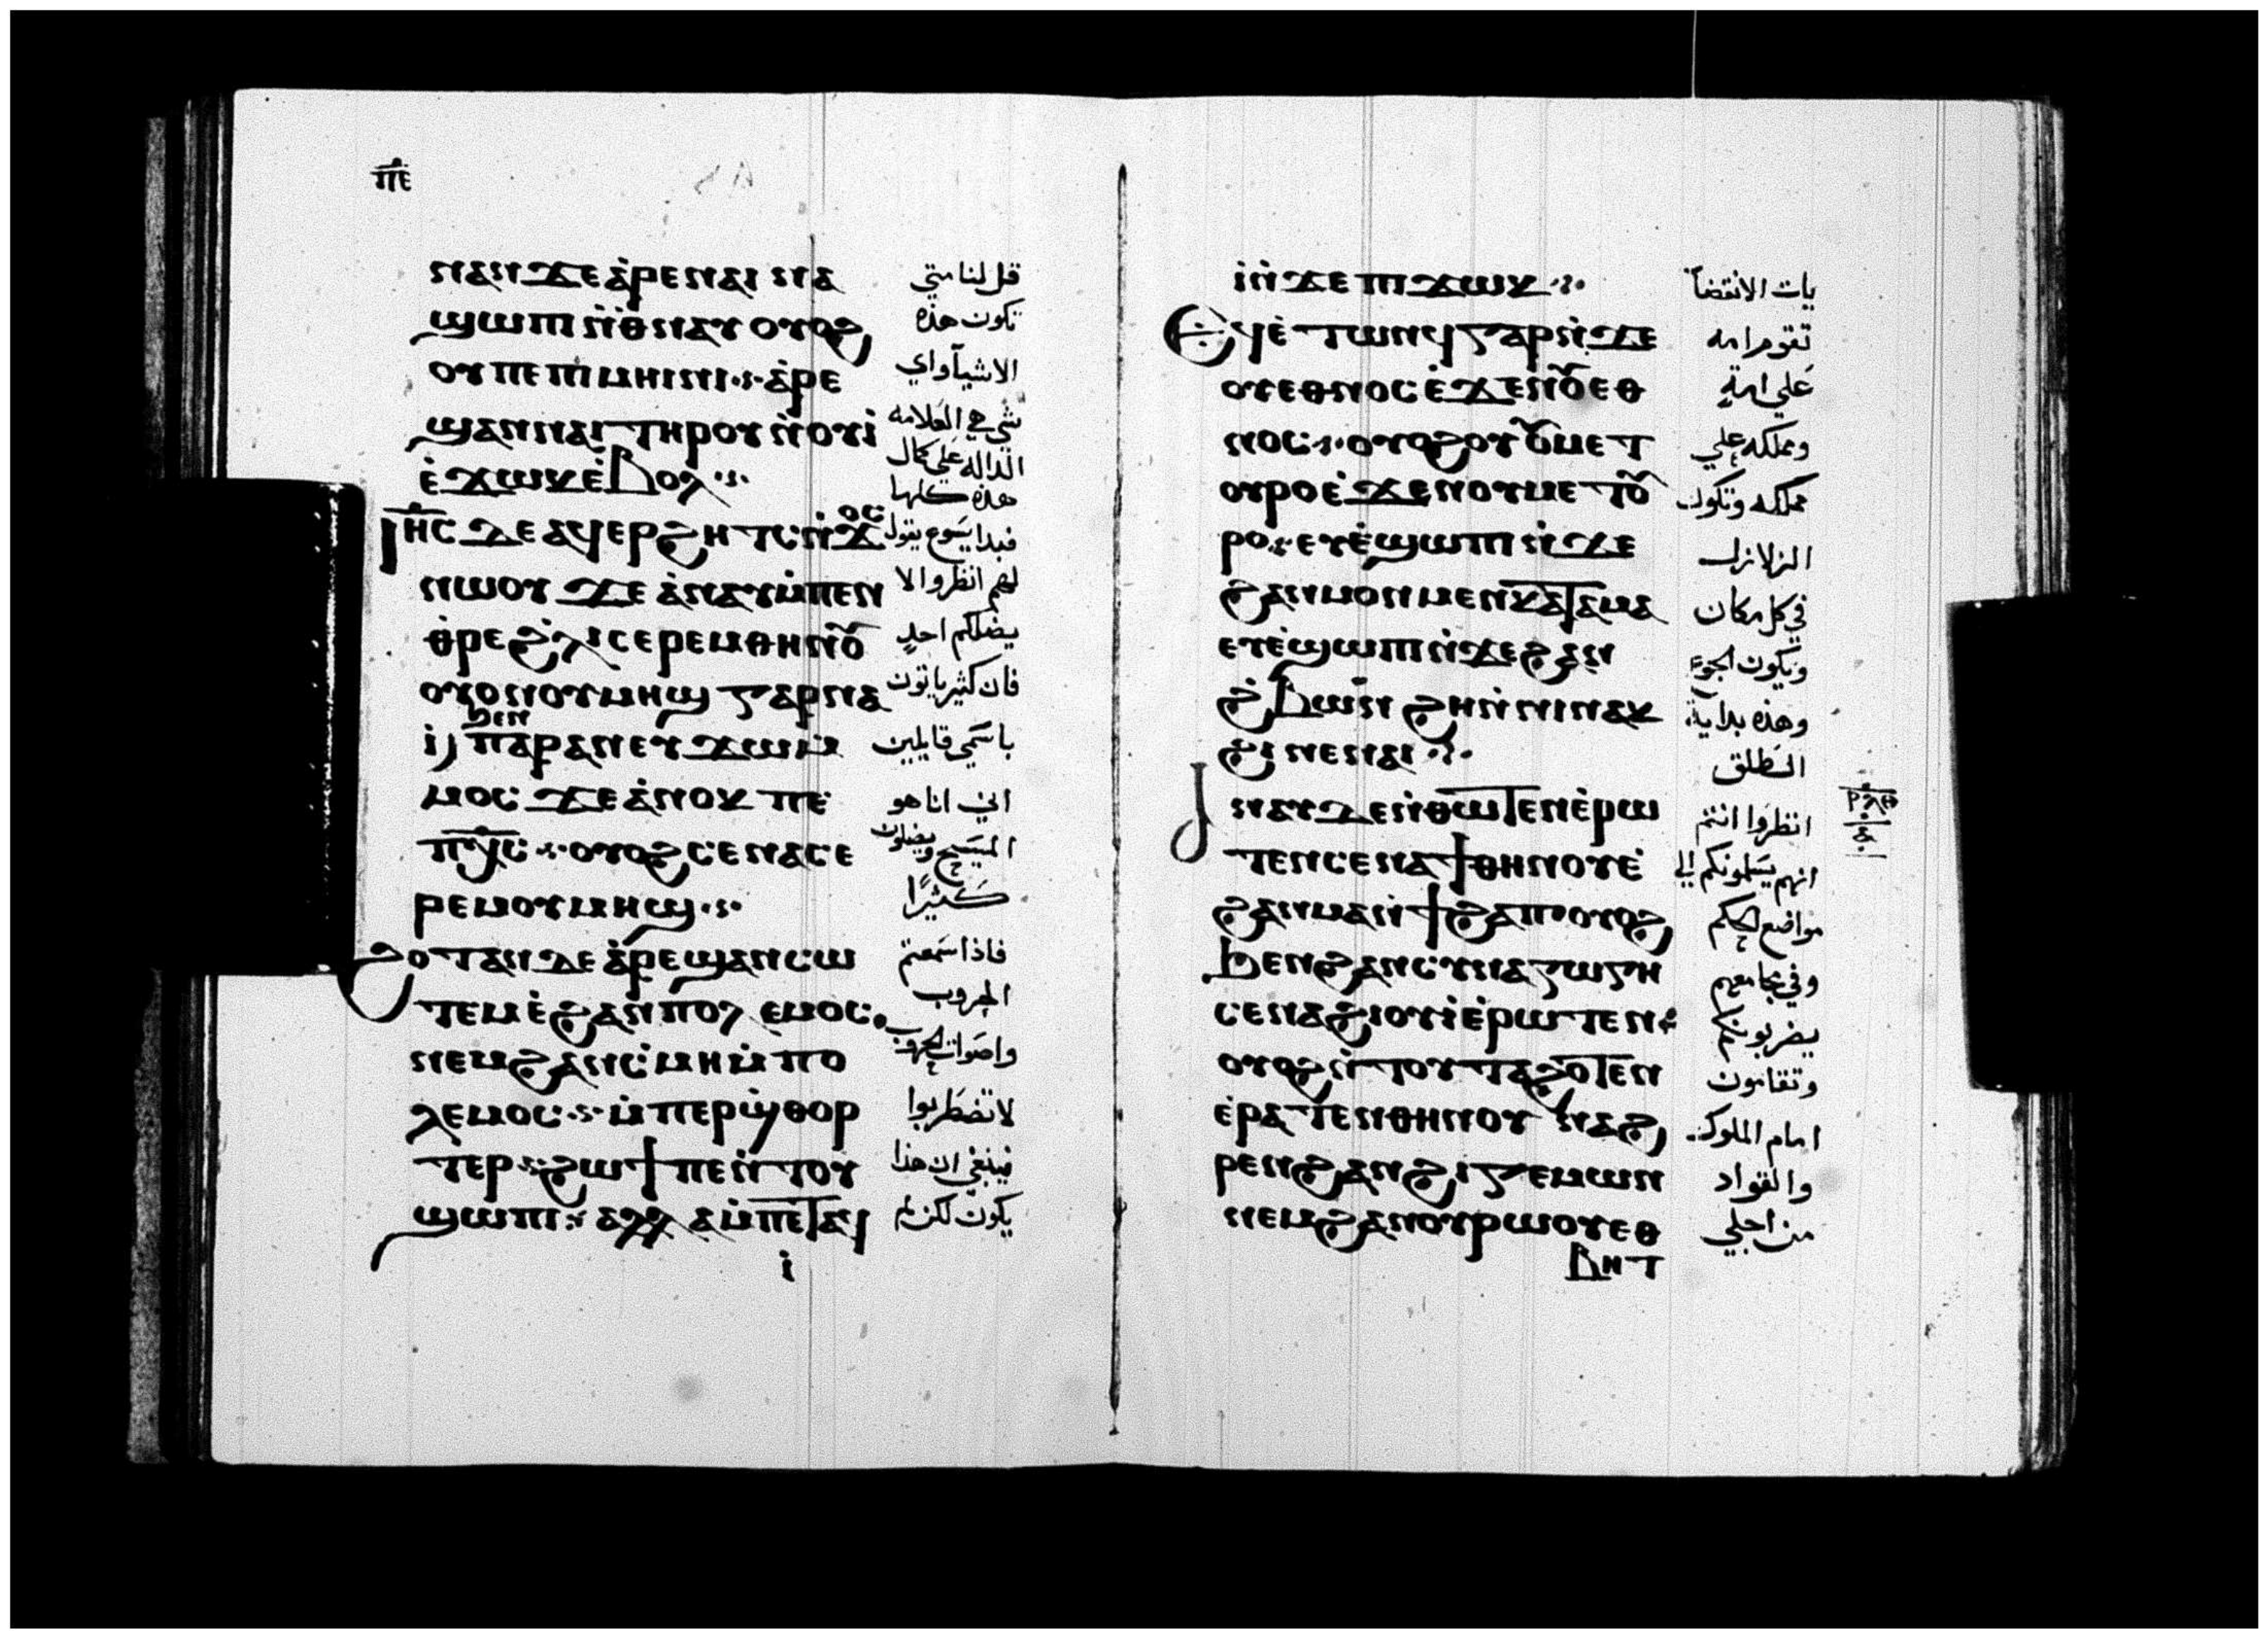 ⲡ̅ⲉ̅
ⲛⲁⲛ ϫⲉ ⲁ̀ⲣⲉ ⲛⲁⲓ ⲛⲁ
ϣⲱⲡⲓ ⲛ̀ⲑⲛⲁⲩ ⲟⲩⲟϩ
ⲟⲩ ⲡⲉ ⲡⲓⲙⲏⲓⲛⲓ ⲁ̀ⲣⲉ
ϣⲁⲛ ⲛⲁⲓ ⲧⲏⲣⲟⲩ ⲛ̀ⲟⲩⲓ̀
ⲉ̀ϫⲱⲕ ⲉ̀ⲃⲟⲗ
ⲓⲏ̅ⲥ ⲇⲉ ⲁϥⲉⲣϩⲏⲧⲥ ⲛ̀ϫⲟⲥ
ⲛⲱⲟⲩ ϫⲉ ⲁ̀ⲛⲁⲩ ⲙ̀ⲡⲉⲛ
ⲑ̀ⲣⲉ ϩ̀ⲗⲓ ⲥⲉⲣⲉⲙ ⲑⲏⲛⲟⲩ
ⲟⲩⲟⲛ ⲟⲩⲙⲏϣ ⲅⲁⲣ ⲛⲁ
ⲓ̀ ϧⲉⲛ ⲡⲁⲣⲁⲛ ⲉⲩϫⲱ ⲙ̀
ⲙⲟⲥ ϫⲉ ⲁ̀ⲛⲟⲕ ⲡⲉ
ⲡⲭ̅ⲥ ⲟⲩⲟϩ ⲥⲉⲛⲁⲥⲉ
ⲣⲉⲙ ⲟⲩⲙⲏϣ
ϩⲟⲧⲁⲛ ⲇⲉ ⲁ̀ⲣⲉϣⲁⲛⲥⲱ
ⲧⲉⲙ ⲉ̀ϩⲁⲛⲡⲟⲗⲉⲙⲟⲥ
ⲛⲉⲙ ϩⲁⲛⲥ̀ⲙⲏ ⲙ̀ⲡⲟ
ⲗⲉⲙⲟⲥ ⲙ̀ⲡⲉⲣϣ̀ⲑⲟⲣ
ⲧⲉⲣ ϩⲱϯ ⲡⲉ ⲛ̀ⲧⲟⲩ
ϣⲱⲡⲓ ⲁⲗⲗⲁ ⲙ̀ⲡⲉⲧⲁϥ
ⲓ̀
قل لنا متي
تكون هذه
الاشيآ واي
شي هي العلامه
الداله علي كمال
هذه كلها
فبدا يسوع يقول
لهم انظروا لا
يضلكم احد
فان كثير ياتون
باسمي قايلين
اني انا هو
المسيح ويضلون
كثيرًا
فاذا سمعتم
الحروب
واصوات الحروب
لا تضطربوا
فينبغي ان هذا
يكون لكن لم
ⲓ̀ ⲛ̀ϫⲉ ⲡⲓϫⲱⲕ
Ⲉϥⲉ̀ⲧⲱⲛϥ ⲅⲁⲣ ⲛ̀ϫⲉ
ⲟⲩⲉⲑⲛⲟⲥ ⲉ̀ϫⲉⲛ ⲟⲩⲉⲑ
ⲛⲟⲥ ⲟⲩⲟϩ ⲟⲩⲙⲉⲧ
ⲟⲩⲣⲟ ⲉ̀ϫⲉⲛ ⲟⲩⲙⲉⲧⲟⲩ
ⲣⲟ ⲉⲩⲉ̀ϣⲱⲡⲓ ⲛ̀ϫⲉ
ϩⲁⲛⲙⲟⲛⲙⲉⲛ ⲕⲁⲧⲁ ⲙⲁ
ⲉⲩⲉ̀ϣⲱⲡⲓ ⲛ̀ϫⲉ ϩⲁⲛ
ϩ̀ⲃⲱⲛ ϩⲏ ⲛ̀ⲛⲓⲛⲁⲕ
ϩⲓ ⲛⲉ ⲛⲁⲓ
Ⲁ
ⲛⲁⲩ ⲇⲉ ⲛ̀ⲑⲱⲧⲉⲛ ⲉ̀ⲣⲱ
ⲧⲉⲛ ⲥⲉⲛⲁϯ ⲑⲏⲛⲟⲩ ⲉ̀
ϩⲁⲛⲙⲁⲛ̀ϯϩⲁⲡ ⲟⲩⲟϩ
ϧⲉⲛ ϩⲁⲛⲥⲩⲛⲁⲅⲱⲅⲏ
ⲥⲉⲛⲁϩⲓⲟⲩⲓ̀ ⲉ̀ⲣⲱⲧⲉⲛ
ⲟⲩⲟϩ ⲛ̀ⲧⲟⲩⲧⲁϩⲟⲧⲉⲛ
ⲉ̀ⲣⲁⲧⲉⲛ ⲑⲏⲛⲟⲩ ⲛⲁϩ
ⲣⲉⲛ ϩⲁⲛϩⲓⲅⲉⲙⲱⲛ
ⲛⲉⲙ ϩⲁⲛⲟⲩⲣⲱⲟⲩ ⲉⲑ
ⲃⲏⲧ
يات الانقضآ
تقوم امه
علي امة
ومملكه علي
مملكه وتكون
الزلازل
في كل مكان
ويكون الجوع
وهذه بداية
الطلق
انظروا انتم
انهم يسلمونكم الي
مواضع الحكم
وفي مجامعهم
يضربونكم
وتقامون
امام الملوك
والقواد
من اجلي
ⲣ̅ⲗ̅ⲑ̅
ⲁ̅